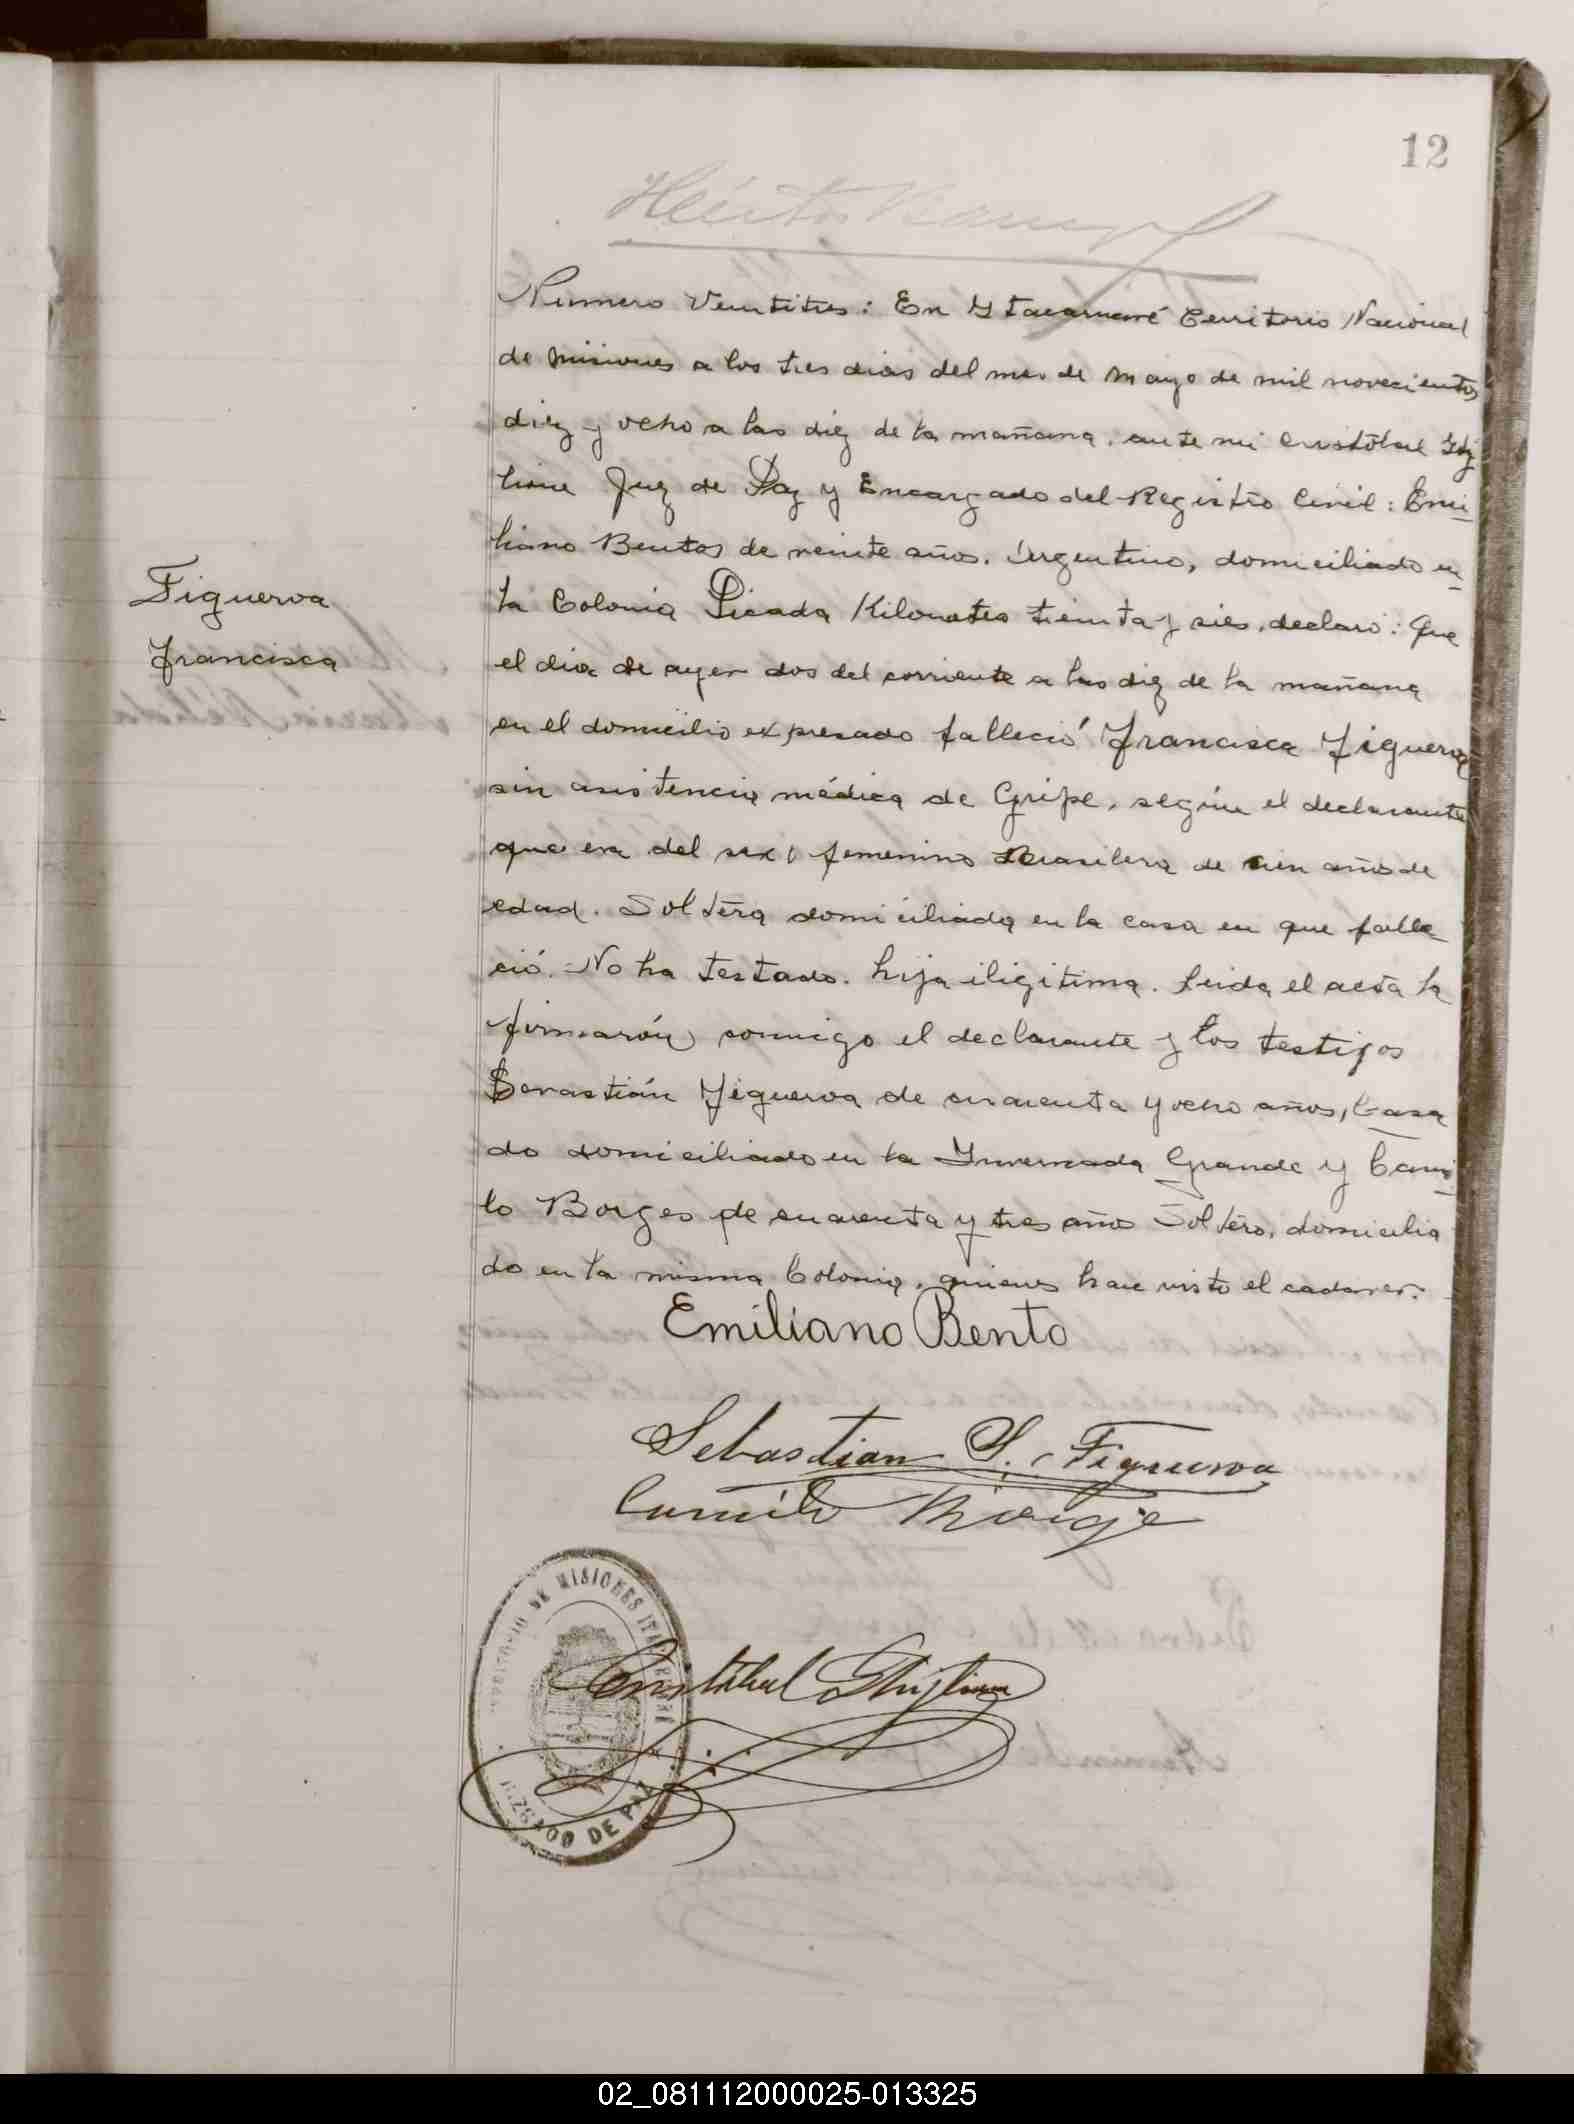 12
Héctor
Numero Veintitres: En Ytacaruaré Territorio Nacional
de Misiones a los tres dias del mes de Mayo de mil novecientos
diez y ocho a las diez de la mañana. ante mi Cristóbal Ghig
lione Juez de Paz y Encargado del Registro Civil: Emi-
liano Bentos de veinte años. Argentino, domiciliado en
la Colonia Picada Kilometro treinta y sies, declaró: Que
el dia de ayer dos del corriente a las diez de la mañana
en el domicilio expresado falleció Francisca Figueroa
sin asistencia médica de Gripe, según el declarante
que era del sexo femenino Brasilera de cien años de
edad. Soltéra domiciliada en la casa en que falle
ció. No ha testado. hija iligitima. Leida el acta la
firmarón conmigo el declarante y los testigos
Sevastián Figueroa de cuarenta y ocho años, Casa
do domiciliado en la Invernada Grande y Cami-
lo Borges de cuarenta y tres años Soltéro, domicilia
do en la misma Colonia, quienes han visto el cadaver.
Figueroa
Francisca
Emiliano Bento
Sebastian S. Figueroa
Camilo Borge
Cristóbal Ghiglione
TERRITORIO DE MISIONES ITACARUARÉ
JUZGADO DE PAZ
02_081112000025-013325